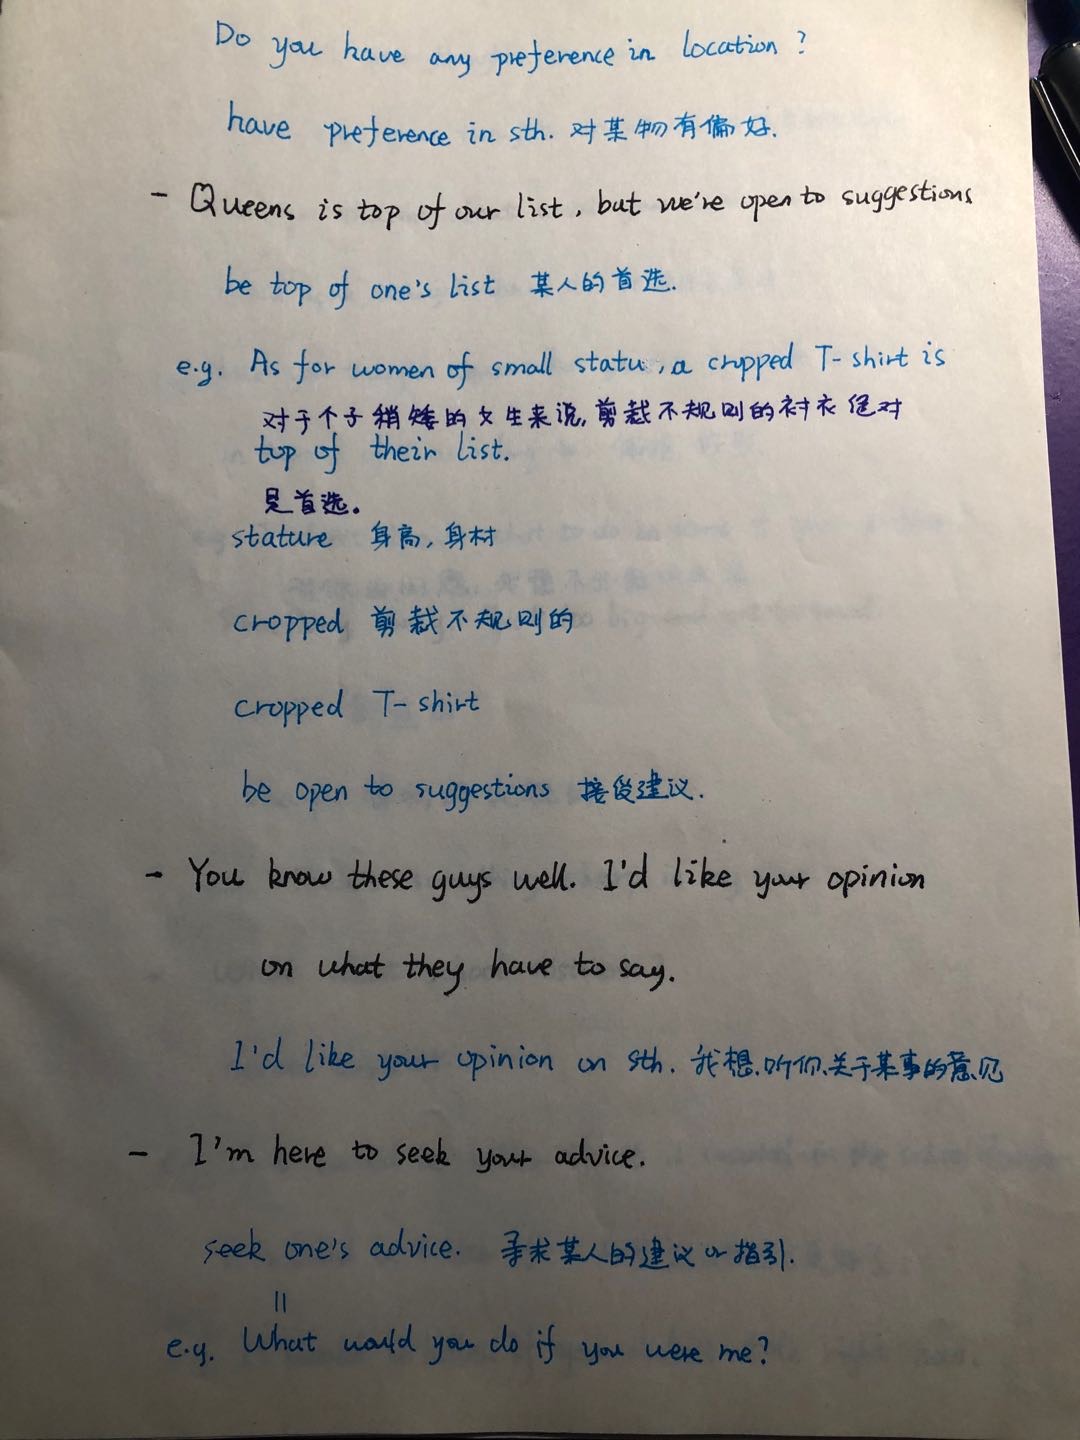 Do you have any preference in location?
have preference in sth. 对某物有偏好.
- Queens is top of our list, but we're open to suggestions
be top of one's list 某人的首选.
e.g. As for women of small statu, a cropped T-shirt is
对于个子稍矮的女生来说,剪裁不规则的衬衣绝对
top of their list.
是首选。
stature 身高,身材
cropped 剪裁不规则的
cropped T-shirt
be open to suggestions 接受建议.
- You know these guys well. I'd like your opinion
on what they have to say.
I'd like your opinion on sth. 我想听你关于某事的意见
- I'm here to seek your advice.
seek one's advice. 寻求某人的建议or指引.
=
e.g. What would you do if you were me?